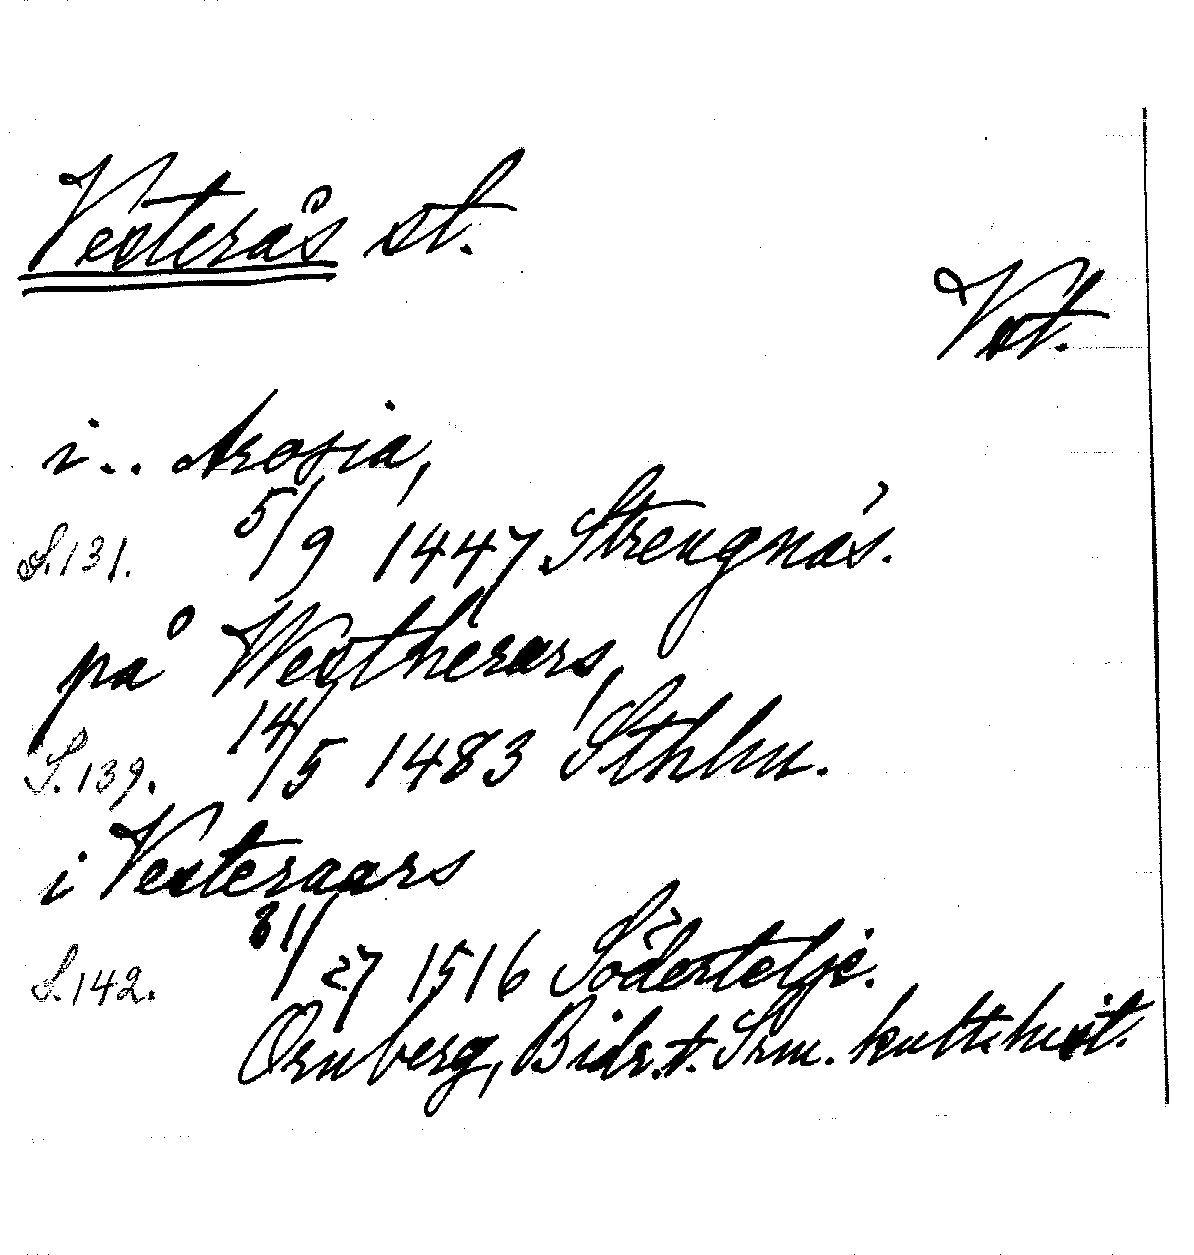 Vesterås st.
Vst.
i.. Arosia,
S.131. 5/9 1447 Strengnäs.
på Westherars,
S.139. 14/5 1483 Sthlm.
i Vesteraars
S.142. 31/27 1516 Södertelje.
Örnberg, Bidr. t. Srm. kulturhist.